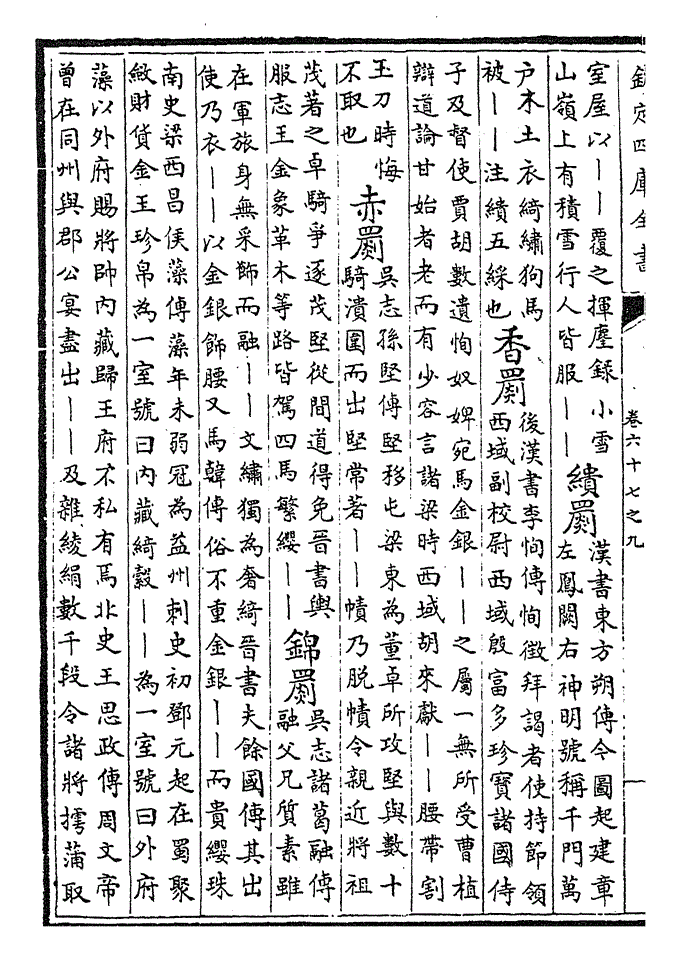 欽定四庫全書
卷六十七之九
一
室屋以——覆之揮麈録小雪
山嶺上有積雪行人皆服——
繢罽
漢書東方朔傳今圖起建章
左鳳闕右神明號稱千門萬
户木土衣綺繡狗馬
被——注繢五綵也
香罽
後漢書李恂傳恂徵拜謁者使持節領
西域副校尉西域殷富多珍寳諸國侍
子及督使賈胡數遺恂奴婢宛馬金銀——之屬一無所受曹植
辯道論甘始者老而有少容言諸梁時西域胡來獻——腰帶割
玉刀時悔
不取也
赤罽
吳志孫堅傳堅移屯梁東為董卓所攻堅與數十
騎潰圍而出堅常著——幘乃脱幘令親近將祖
茂著之卓騎爭逐茂堅從間道得免晉書輿
服志王金象革木等路皆駕四馬繁纓——
錦罽
吳志諸葛融傳
融父兄質素雖
在軍旅身無采飾而融——文繡獨為奢綺晉書夫餘國傳其出
使乃衣——以金銀飾腰又馬韓傳俗不重金銀——而貴纓珠
南史梁西昌侯藻傳藻年未弱冠為益州刺史初鄧元起在蜀聚
斂財貨金玉珍帛為一室號曰内藏綺縠——為一室號曰外府
藻以外府賜將帥内藏歸王府不私有焉北史王思政傳周文帝
曾在同州與郡公宴盡出——及雜綾絹數千段令諸將摴蒲取